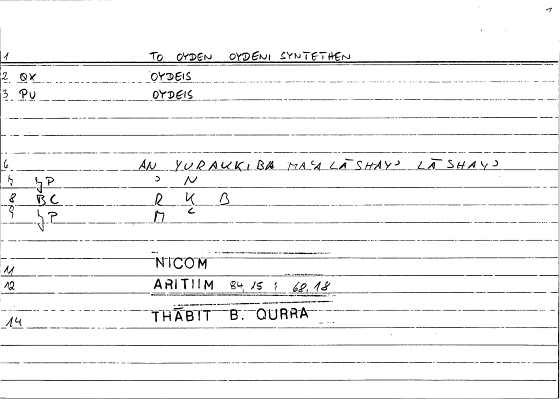 1 TO OYDEN OYDENI SYNTETHEN
2 QX OYDEIS
3 PU OYDEIS
6 AN YURAKKIBA MAʿA LĀ SHAYʾ LĀ SHAYʾ
YP ʾ N
8 BC R K B
9 YP M ʿ
11 NICOM
12 ARITIIM 84,15 ; 68,18
14 THĀBIT B. QURRA